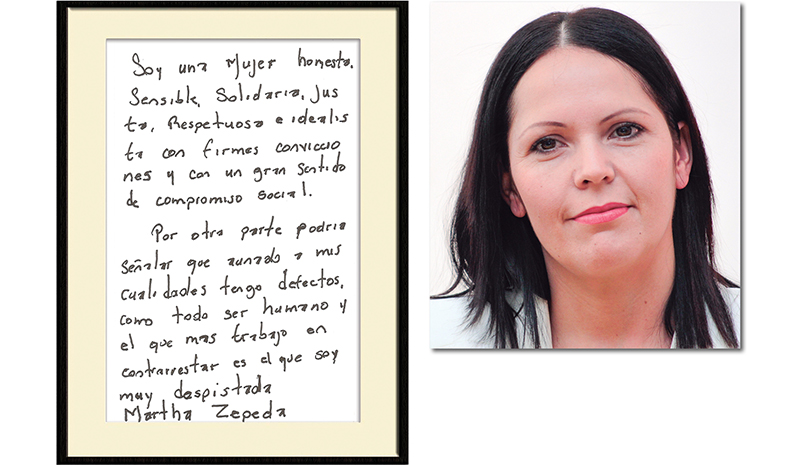 Soy una Mujer honesta,
Sensible, Solidaria, Jus
ta, Respetuosa e idealis
ta con firmes conviccio
nes y con un gran sentido
de compromiso social.
Por otra parte podria
señalar que aunado a mis
cualidades tengo defectos,
como todo ser humano y
el que mas trabajo en
contrarrestar es el que soy
muy despistada
Martha Zepeda